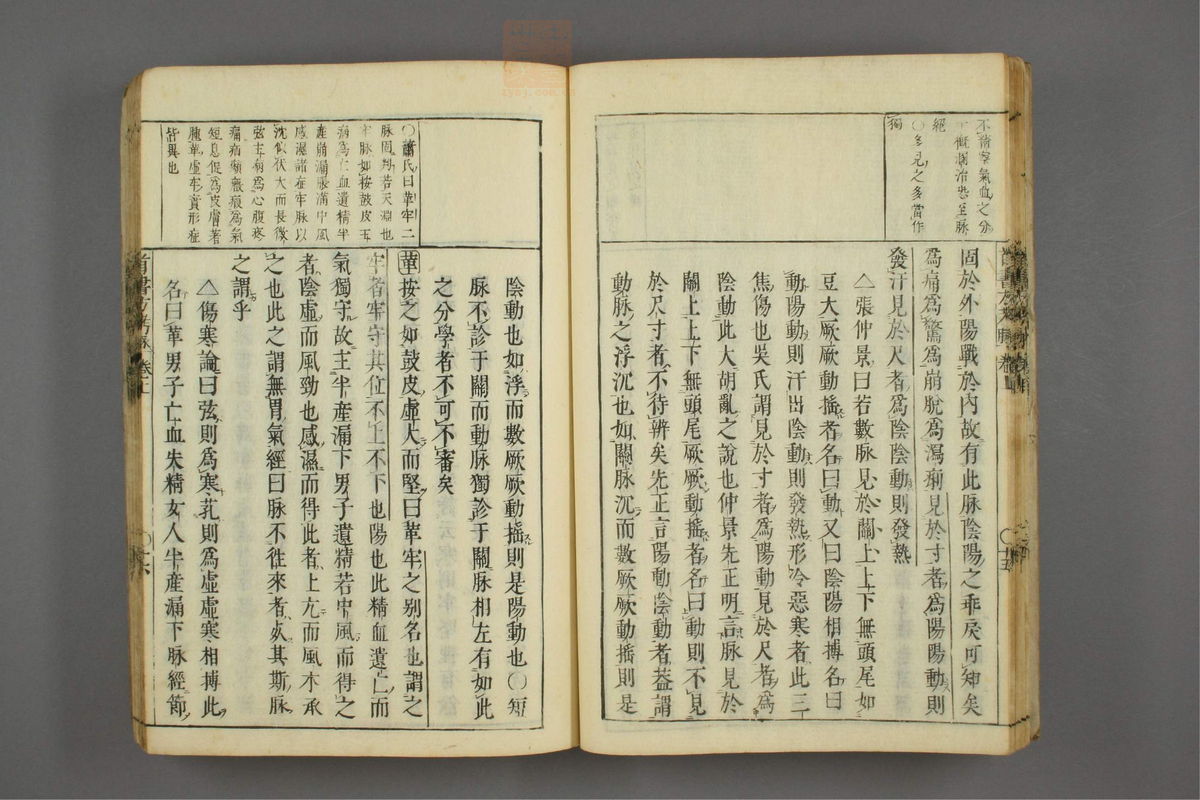 不審察氣血之分
一槪溷治恐至脉
絕
○多見之多當作
獨
固於外陽戰於內故有此脉陰陽之乖戾可知矣
爲痛爲驚爲崩脫爲瀉痢見於寸者爲陽陽動則
發汗見於尺者爲陰陰動則發熱
△張仲景曰若數脉見於關上上下無頭尾如
豆大厥厥動搖者名曰動又曰陰陽相搏名曰
動陽動則汗出陰動則發熱形冷惡寒者此三
焦傷也吳氏謂見於寸者爲陽動見於尺者爲
陰動此大胡亂之說也仲景先正明言脉見於
關上上下無頭尾厥厥動搖者名曰動則不見
於尺寸者不待辨矣先正言陽動陰動者葢謂
動脉之浮沉也如關脉沉而數厥厥動搖則是
○蕭氏曰革牢二
脉固判若天淵也
牢脉如按鼓皮五
病爲亡血遺精半
產崩漏脹滿中風
感濕諸症牢脉以
沉似伏大而長微
弦主病爲心腹疼
痛疝癩癥瘕爲氣
短息促爲皮膚著
腫革虛牢實形症
皆異也
陰動也如浮而數厥厥動搖則是陽動也○短
脉不診于關而動脉獨診于關脉相左有如此
之分學者不可不審矣
革按之如鼓皮虛大而堅曰革牢之别名也謂之
牢者牢守其位不上不下也陽也此精血遺亡而
氣獨守故主半產漏下男子遺精若中風而得之
者陰虛而風勁也感濕而得此者上亢而風木承
之也此之謂無胃氣經曰脉不徃來者死其斯脉
之謂乎
△傷寒論曰弦則爲寒芤則爲虛虛寒相搏此
名曰革男子亡血失精女人半產漏下脉經節